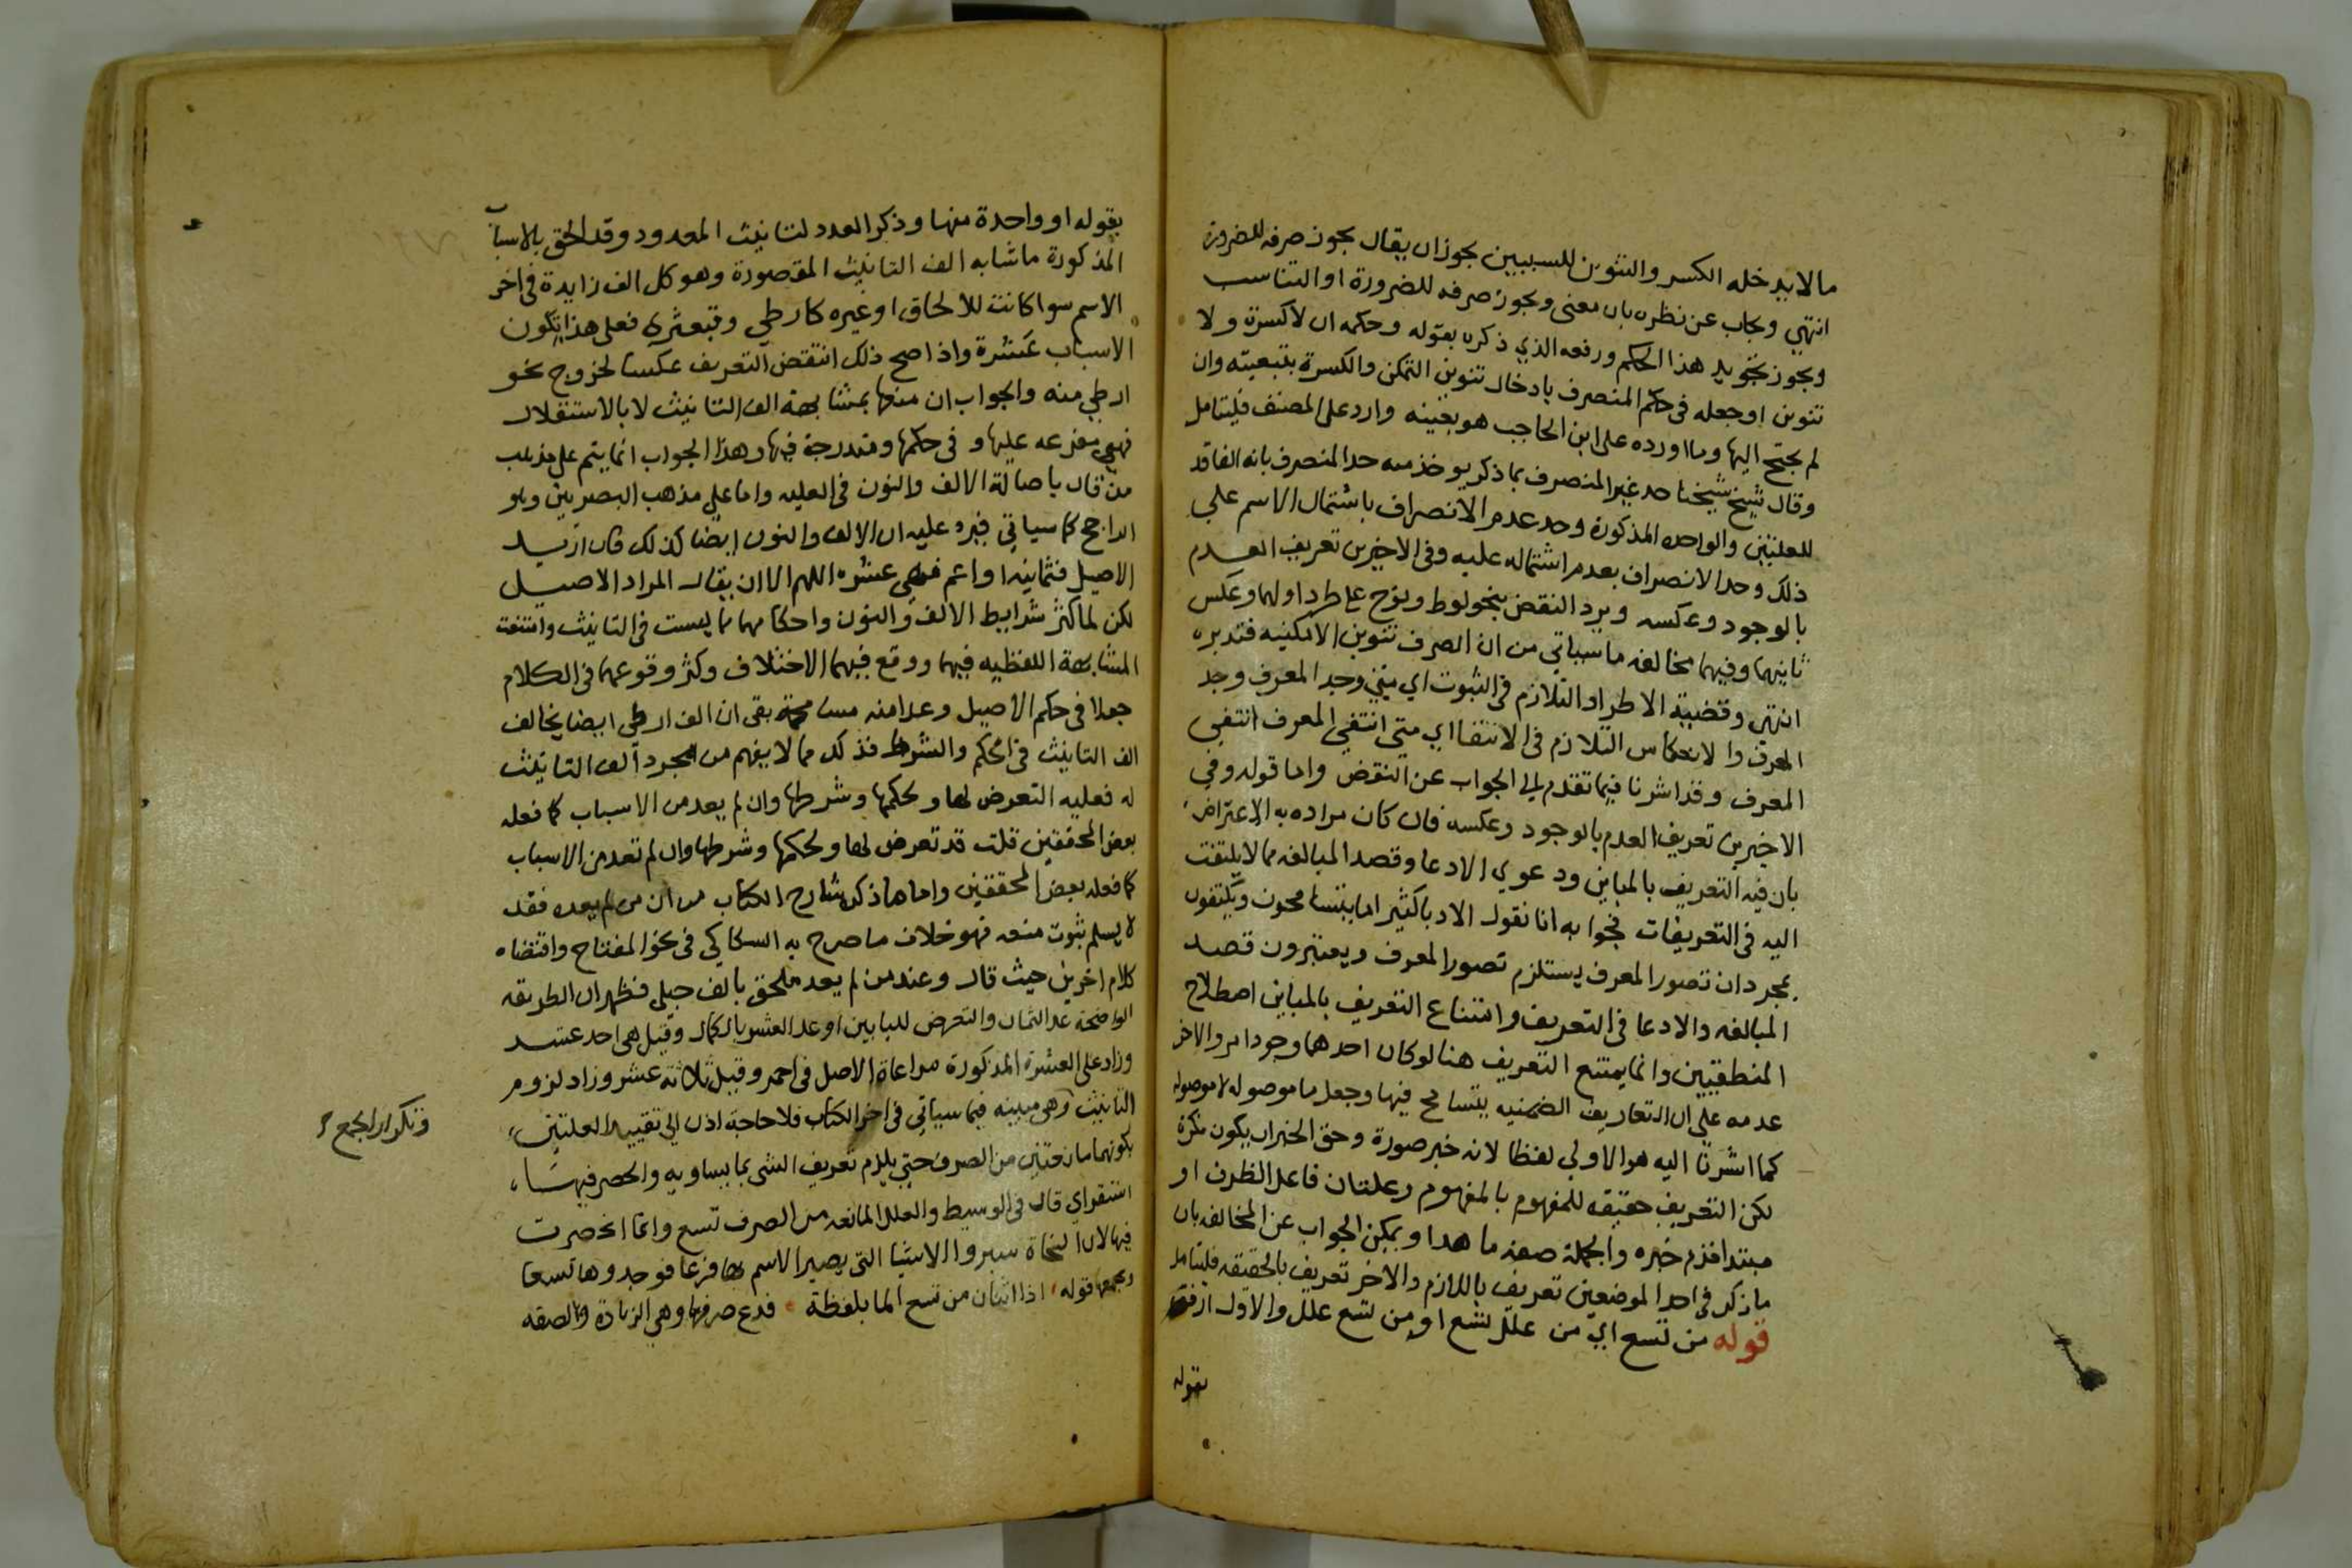 ما لا يدخله الكسر والتنوين للسببين يجوز ان يقال يجوز صرفه للضرورة
انتهي ويجاب عن نظره بان معنى ويجوز صرفه للضرورة او التناسب
ويجوز هذا الحكم ورفعه الذي ذكره بقوله وحكمه ان لا كسرة ولا
تنوين او جعله في حكم المنصرف بادخال تنوين التمكن والكسرة بتبعيته وان
لم يحتج اليها وما اورده على ابن الحاجب هو بعينه وارد على المصنف فليتامل
وقال شيخ شيخنا حد غير المنصرف بما ذكر يوخذ منه حد المنصرف بانه الفاقد
للعلتين والواحدة المذكورة وحد عدم الانصراف باشتمال الاسم علي
ذلك وحد الانصراف بعدم اشتماله عليه وفي الاخيرين تعريف العدم
بالوجود وعكسه ويرد النقض بنحو لوط ونوح على طرد اولهما وعكس
ثانيهما وفيهما مخالفة ما سياتي من ان الصرف تنوين الامكنيه فتدبره
انتهي وقضية الاطراد التلازم في الثبوت اي متي وجد المعرف وجد
المعرف والانعكاس التلازم في الانتفا اي متي انتفي المعرف انتفي
المعرف وقد اشرنا فيما تقدم الي الجواب عن النقض واما قوله وفي
الاخيرين تعريف العدم بالوجود وعكسه فان كان مراده به الاعتراض
بان فيه التعريف بالمباين ودعوي الادعا وقصد المبالغه مما لا يلتفت
اليه في التعريفات فجوابه انا نقول الادبا كثيرا ما يتسامحون ويكتفون
بمجرد ان تصور المعرف يستلزم تصور المعرف ويعتبرون قصد
المبالغه والادعا في التعريف وامتناع التعريف بالمباين اصطلاح
المنطقيين وانما يمتنع التعريف هنا لو كان احدهما وجود امر والاخر
عدمه على ان التعاريف الضمنيه يتسامح فيها وجعل ما موصوله لا موصوله
كما اشرنا اليه هو الاولي لفظا لانه خبر صورة وحق الخبر ان يكون نكرة
لكن التعريف حقيقه للمفهوم بالمفهوم وعلتان فاعل الظرف او
مبتدا قدم خبره والجملة صفة ما هدا ويمكن الجواب عن المخالفه بان
ما ذكر في احد الموضعين تعريف باللازم والاخر تعريف بالحقيقه فليتامل
قوله من تسع اي من علل تسع او من تسع علل والاول
بقوله
بقوله او واحدة منها وذكر العدد لتانيث المعدود وقد الحق بالاسباب
المذكورة ما شابه الف التانيث المقصورة وهو كل الف زايدة في اخر
الاسم سوا كانت للالحاق او غيره كارطي وقبعثري فعلى هذا يكون
الاسباب عشرة واذا صح ذلك انتقض التعريف عكسا لخروج نحو
ارطي منه والجواب ان منعها بمشابهة الف التانيث لا بالاستقلال
فهي مفرعه عليها وفي حكمها ومندرجة فيها وهذا الجواب انما يتم على مذهب
من قال باصالة الالف والنون في العليه واما علي مذهب البصريين وهو
الراجح كما سياتي فيرد عليه ان الالف والنون ايضا كذلك فان اريد
الاصيل فثمانيه او اعم فهي عشره اللهم الا ان يقال المراد الاصيل
لكن لما كثر شرايط الالف والنون واحكامهما مما ليست في التانيث وامتنعت
المشابهة اللفظيه فيهما ووقع فيهما الاختلاف وكثر وقوعهما في الكلام
جعلا في حكم الاصيل وعدا منه مسامحة بقى ان الف ارطى ايضا يخالف
الف التانيث في الحكم والشرط فذكر مما لا يفهم من مجرد الف التانيث
له فعليه التعرض لها ولحكمها وشرطها وان لم يعد من الاسباب كما فعله
بعض المحققين قلت قد تعرض لها ولحكمها وشرطها وان لم تعد من الاسباب
كما فعله بعض المحققين واما ما ذكره شارح الكتاب من ان من لم يعده فقد
لا يسلم ثبوت منعه فهو خلاف ما صرح به السكاكي في نحو المفتاح واقتضاه
كلام اخرين حيث قال وعند من لم يعد ملحق بالف حبلى فظهر ان الطريقه
الواضحة عد الثمان والتعرض للبابين او عد العشر بالكمال وقيل هي احد عشر
وزاد على العشرة المذكورة مراعاة الاصل في احمر وقيل ثلاثة عشر وزاد لزوم
التانيث وهي مبينه فيما سياتي في اخر الكتاب فلا حاجة اذن الي تقييد العلتين
وتكرار الجمع
بكونهما مانعتين من الصرف حتي يلزم تعريف الشى بما يساويه والحصر فيها
استقراي قال في الوسيط والعلل المانعه من الصرف تسع وانما انحصرت
فيها لان النحاة سبروا الاشيا التي يصير الاسم بها فرعا فوجدوها تسعا
ويجمعها قوله اذا اثنان من تسع الما بلفظة فدع صرفها وهي الزيادة والصفه